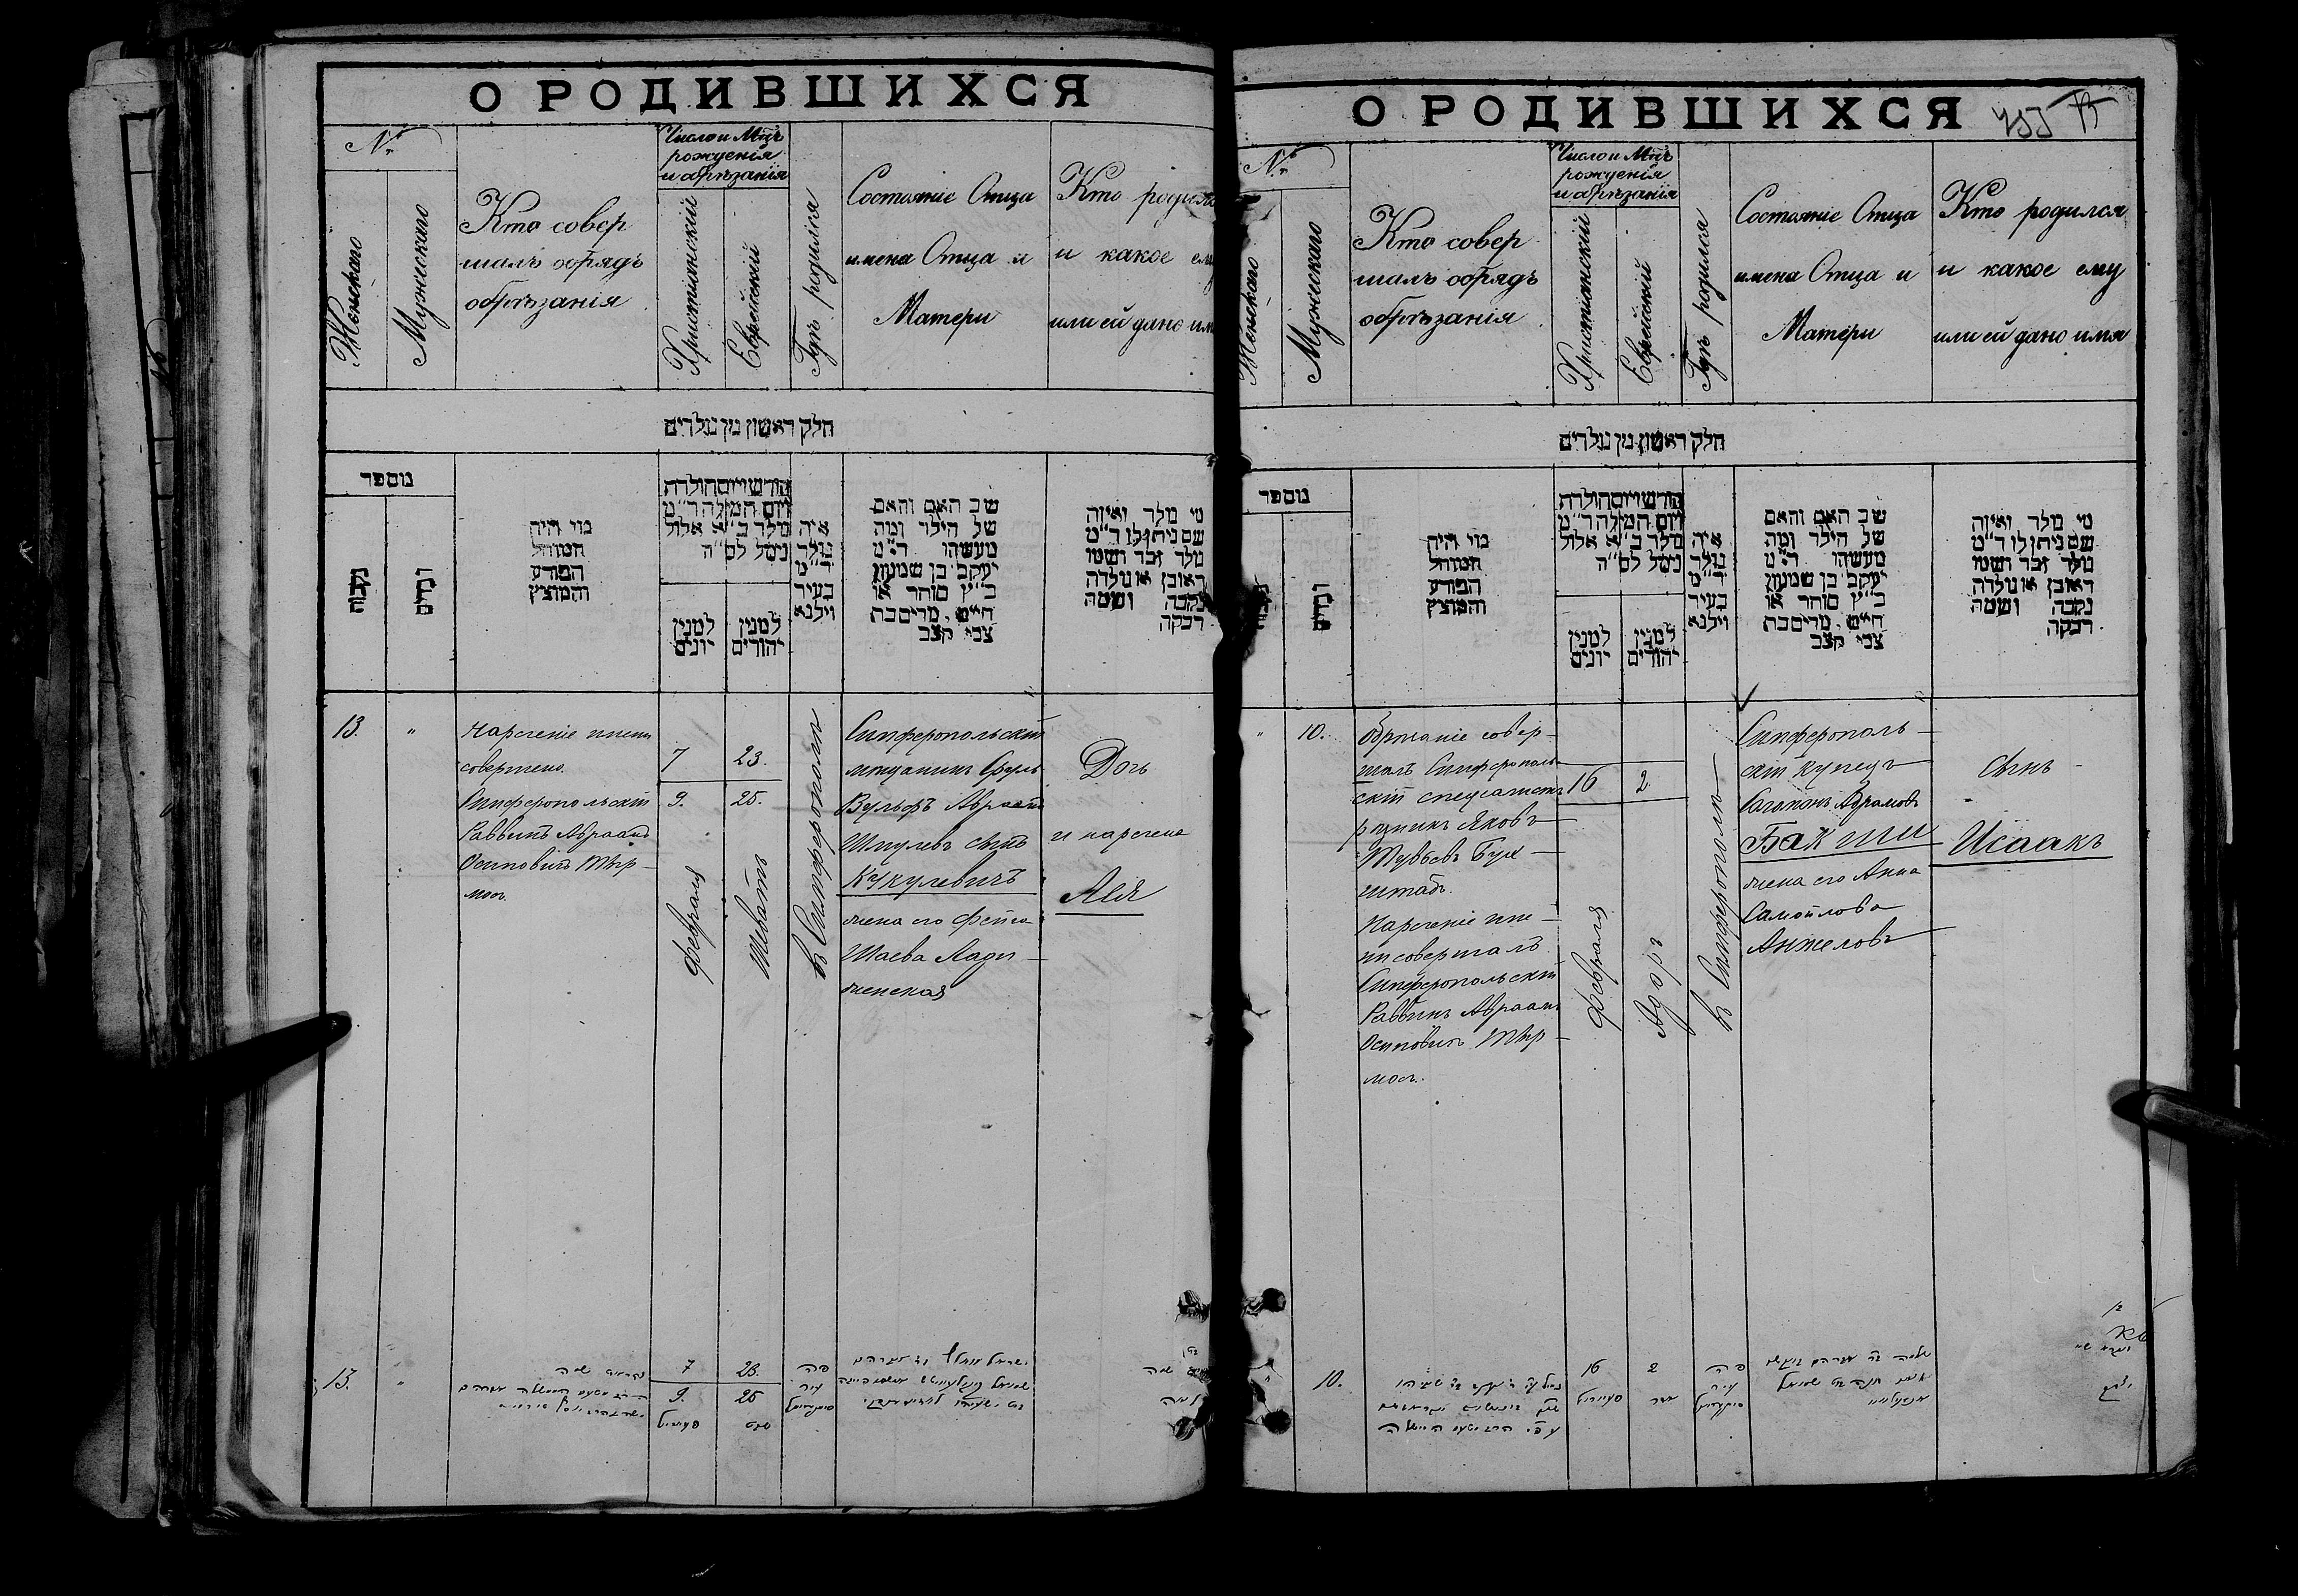 О РОДИВШИХСЯ
№
Женскаго
Мужескаго
Кто совер
шалъ обрядъ
обрѣзанія
Число и Мцъ
рожденія
и обрѣзанія
Христіанскій
Еврейскій
Гдѣ родился
Состояніе Отца
имена Отца и
Матери
Кто родился
и какое ему
или ей дано имя
חלק ראשון מן נולדים
מספר
נקבות
זכרים
מי היה
המוהל
הפורע
והמוצץ
חודש ויום הולדת
ויום המילה ד"מ
נולד ב"א אלול
נימל לס"ה
למנין
יונים
למנין
יהודים
איה
נולד
ד"מ
בעיר
ווילנא
שב האם והאם
של הילד ומה
מעשהו ד"מ
יעקב בן שמעון
כ"ץ סוחר או
חייט, מרים בת
צבי קצב
מי נולד ואיזה
שם ניתן לו ד"מ
נולד זכר ושמו
ראובן או נולדה
נקבה ושמה
רבקה
13.
"
Нареченіе имени
совершено
Симферопольскій
Раввинъ Авраамъ
Осиповичъ
7
23.
9.
25.
Февраля
Шеватъ
в Симферополѣ
Симферопольскій
мѣщанинъ Сруль
Вульфъ Авраамъ
Шмулевъ сынъ
Кукулевичъ
жена его Фейга
Шаева Лады-
женская
Дочь
и наречена
Лія
13.
"
7
23.
9.
25
О РОДИВШИХСЯ
№
Женскаго
Мужескаго
Кто совер
шалъ обрядъ
обрѣзанія
Число и Мцъ
рожденія
и обрѣзанія
Христіанскій
Еврейскій
Гдѣ родился
Состояніе Отца
имена Отца и
Матери
Кто родился
и какое ему
или ей дано имя
חלק ראשון מן נולדים
מספר
זכרים
מי היה
המוהל
הפורע
והמוצץ
חודש ויום הולדת
ויום המילה ד"מ
נולד ב"א אלול
נימל לס"ה
למנין
יונים
למנין
יהודים
איה
נולד
ד"מ
בעיר
ווילנא
שב האם והאם
של הילד ומה
מעשהו ד"מ
יעקב בן שמעון
כ"ץ סוחר או
חייט, מרים בת
צבי קצב
מי נולד ואיזה
שם ניתן לו ד"מ
נולד זכר ושמו
ראובן או נולדה
נקבה ושמה
רבקה
"
10.
Обрѣзаніе совер-
шалъ Симферополь-
скій спеціалистъ
рѣзникъ Яковъ
Тувьевъ Бук-
штабъ.
Нареченіе име-
ни совершалъ
Симферопольскій
Раввинъ Авраамъ
Осиповичъ
16
2
Февраля
Адоръ
в Симферополѣ
Симферополь-
скій купецъ
Соломонъ Абрамовъ
Бакши
жена его Анна
Самойлова
Анжелова
Сынъ
Исаакъ
10.
16
2